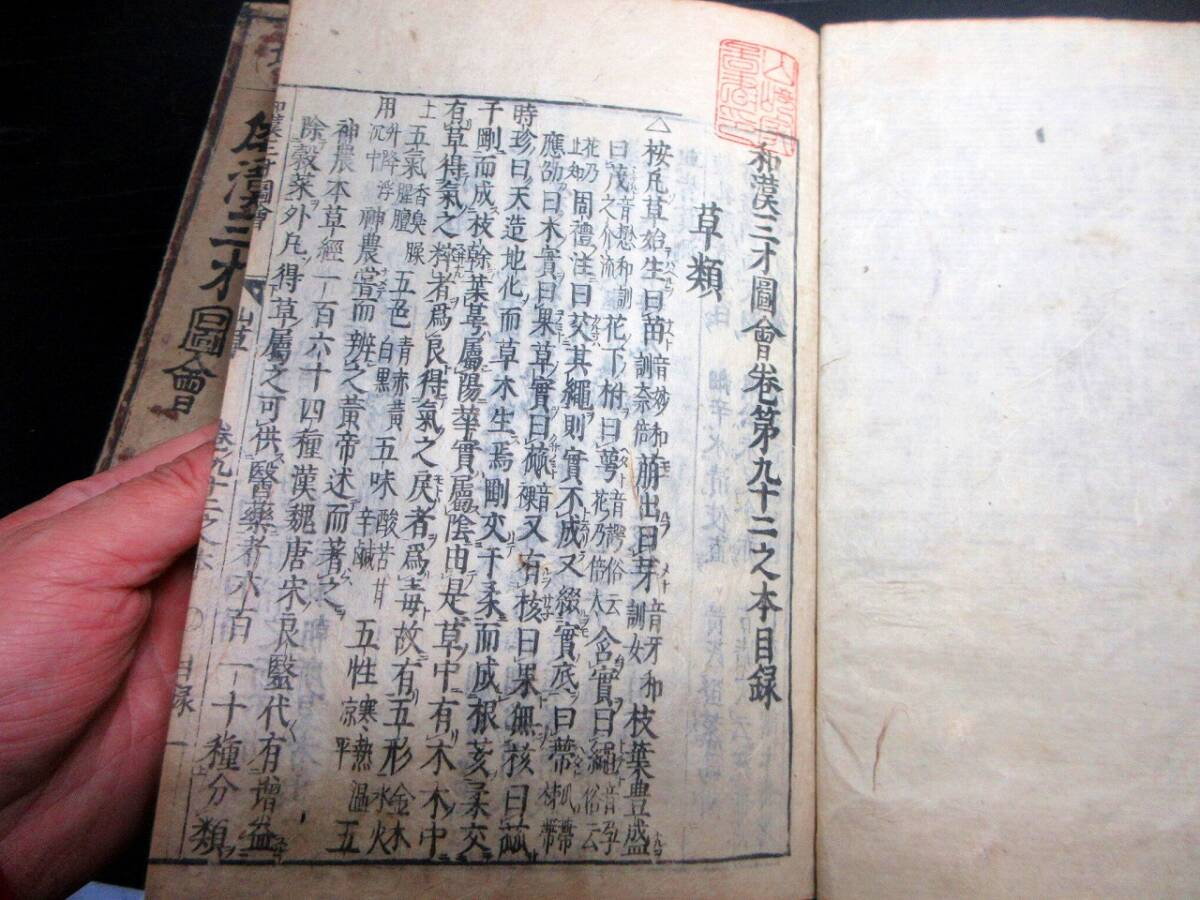 和漢三才圖會卷第九十二之本目録
草類
△按凡草始生曰苗音妙和訓奈倍萠出曰芽音牙和訓女枝葉豊盛
曰茂音懋和訓花下柎曰萼音諤俗云花乃倍太含實曰繩音孕俗云
止知周禮注曰芡其繩則實不成又綴實底曰蔕
應劭曰木實曰果草實曰蓏音裸又有核曰果無核曰蓏
時珍曰天造地化而草木生焉剛交于柔而成根荄柔交
于剛而成枝幹葉萼屬陽華實屬陰由是草中有木木中
有草得氣之粹者爲良得氣之戾者爲毒故有五形金木水火
土五氣香臭臊腥膻五色青赤黄白黒五味酸苦甘辛鹹五性寒熱温凉平五
用升降浮沉中神農嘗而辨之黄帝述而著之
神農本草經一百六十四種漢魏唐宋良醫代有増益
除穀菜外凡得草屬之可供醫藥者六百一十種分類
和漢三才圖會
山草
卷九十二之本
〇目録
一
和漢三才圖會